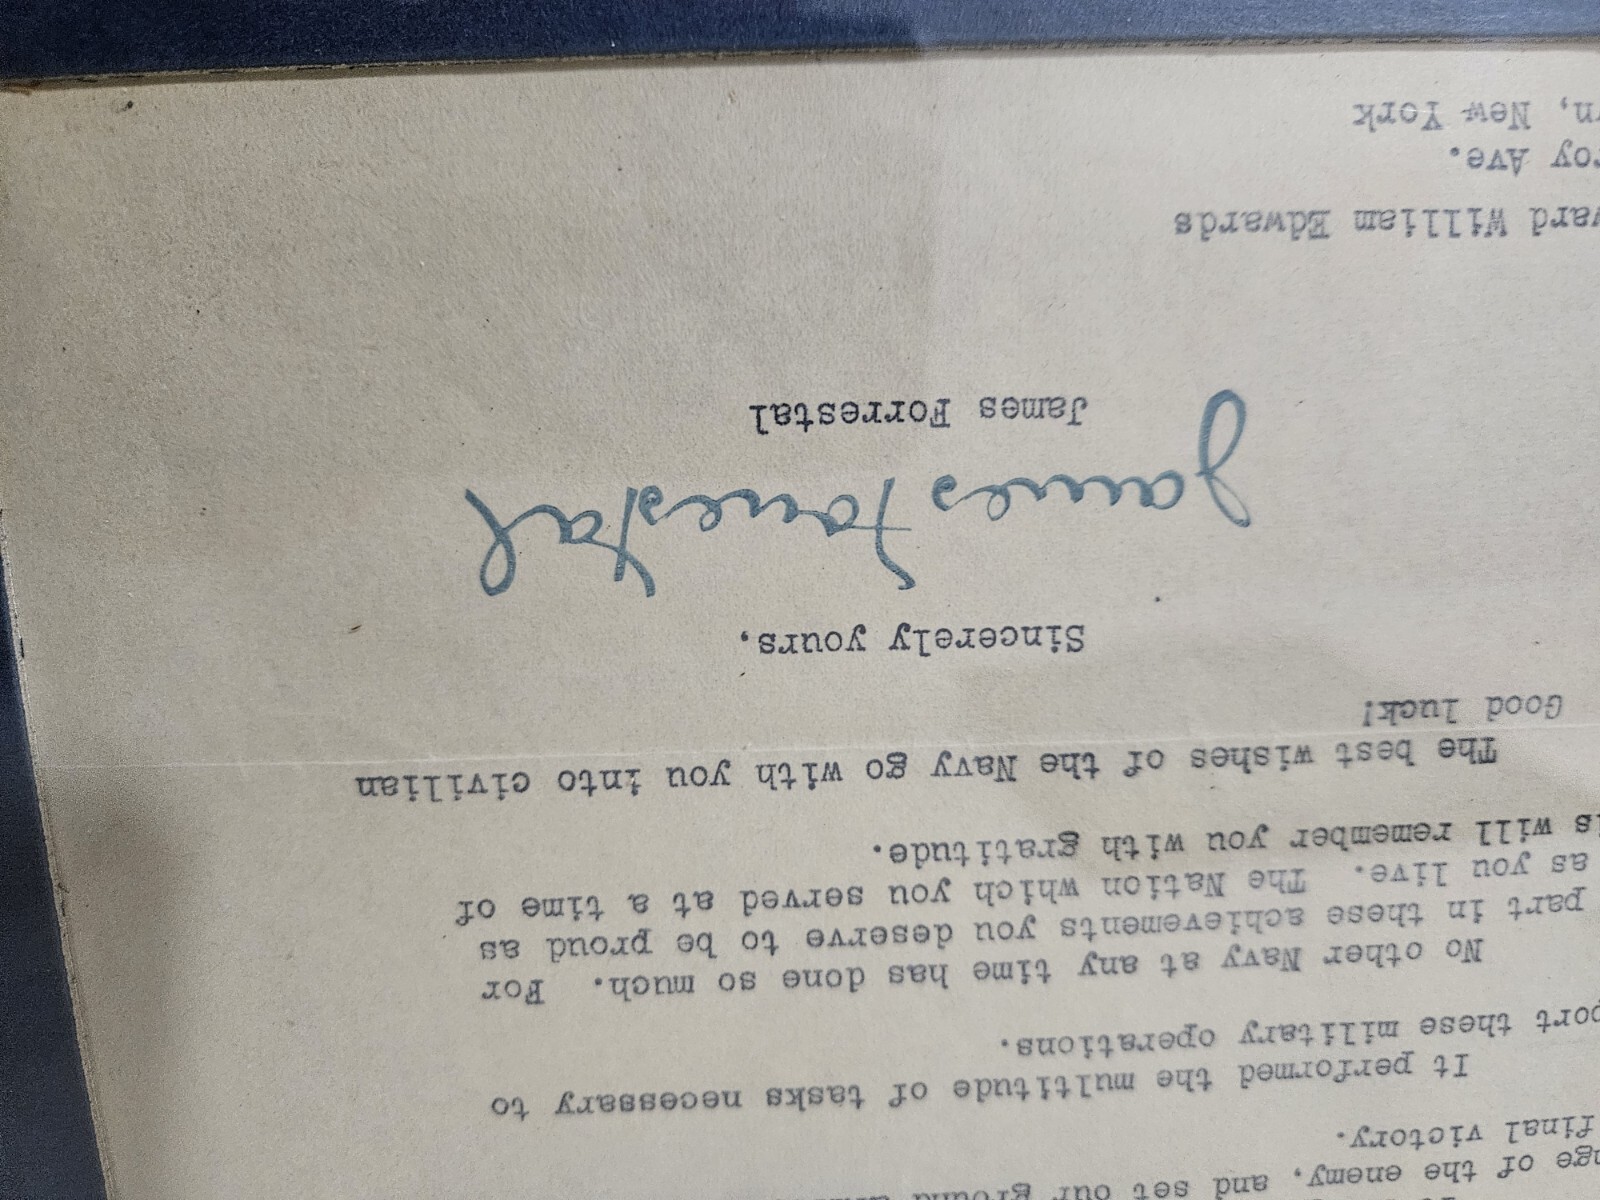 of the enemy, and set our ground
final victory.
It performed the multitude of tasks necessary to
these military operations.
No other Navy at any time has done so much. For
part in these achievements you deserve to be proud as
as you live. The Nation which you served at a time of
will remember you with gratitude.
The best wishes of the Navy go with you into civilian
Good luck!
Sincerely yours,
James Forrestal
James Forrestal
William Edwards
Ave.
New York